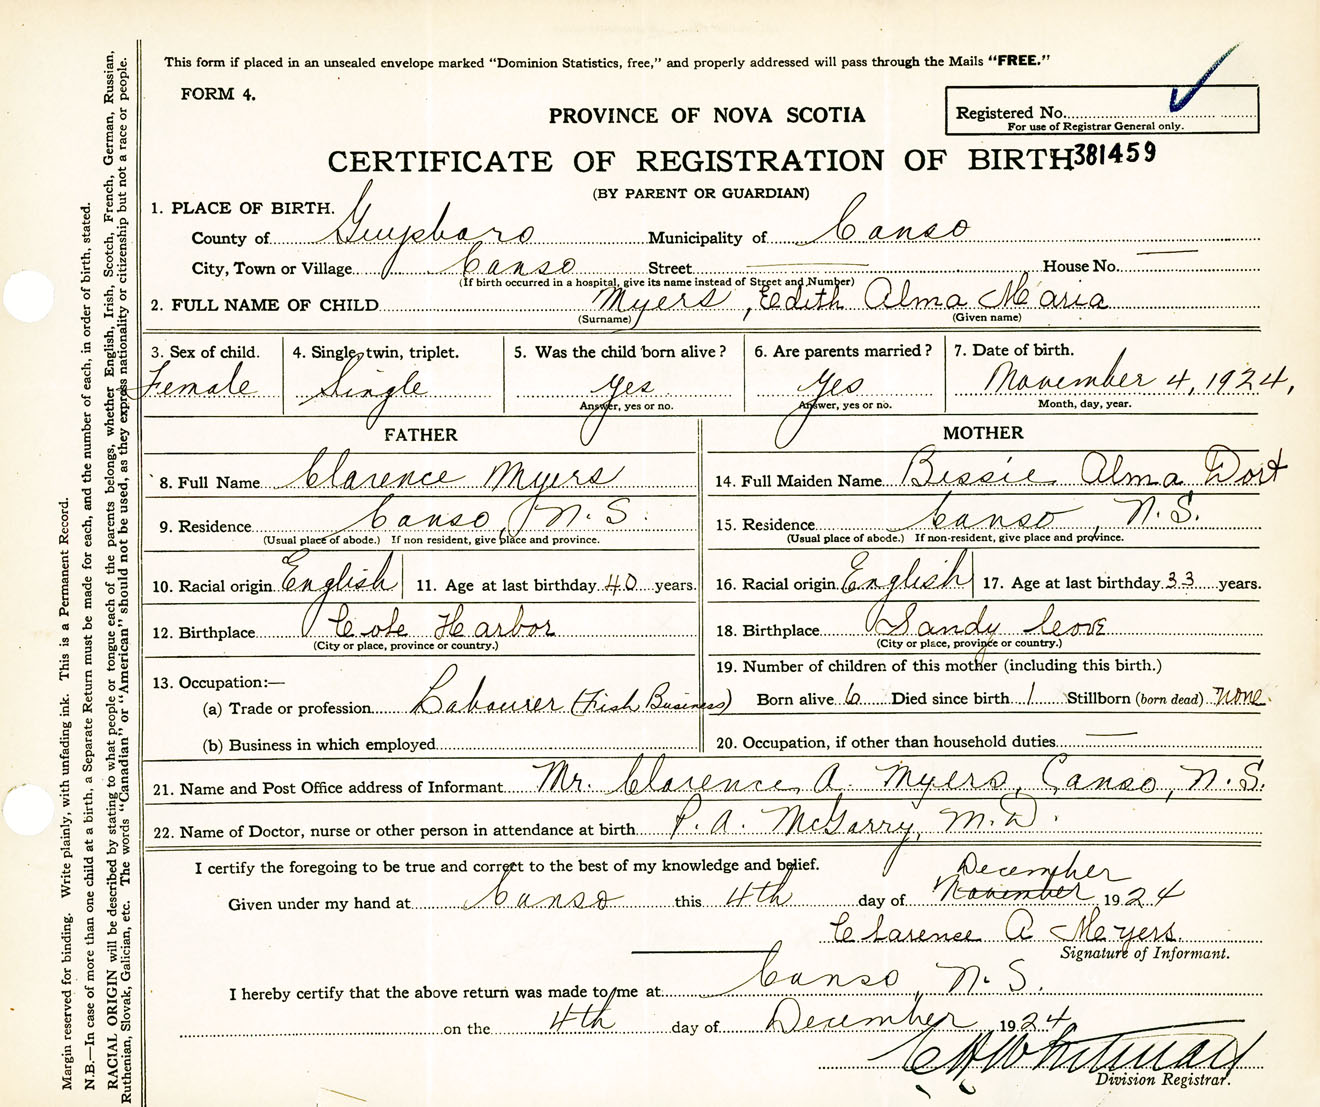 This form if placed in an unsealed envelope marked "Dominion Statistics, free," and properly addressed will pass through the Mails "FREE."
FORM 4.
PROVINCE OF NOVA SCOTIA
Registered No.
For use of Registrar General only.
CERTIFICATE OF REGISTRATION OF BIRTH 381459
(BY PARENT OR GUARDIAN)
1. PLACE OF BIRTH.
County of Guysboro Municipality of Canso
City, Town or Village Canso Street House No.
(If birth occurred in a hospital, give its name instead of Street and Number)
2. FULL NAME OF CHILD Myers, Edith Alma Maria
(Surname) (Given name)
3. Sex of child. 4. Single, twin, triplet. 5. Was the child born alive? 6. Are parents married? 7. Date of birth.
Female Single Yes Yes November 4, 1924,
Answer, yes or no. Answer, yes or no. Month, day, year.
FATHER
8. Full Name Clarence Myers
9. Residence Canso, N.S.
(Usual place of abode.) If non resident, give place and province.
10. Racial origin English 11. Age at last birthday 40 years.
12. Birthplace Cole Harbor
(City or place, province or country.)
13. Occupation:—
(a) Trade or profession Labourer (Fish Business)
(b) Business in which employed
MOTHER
14. Full Maiden Name Bessie Alma Dort
15. Residence Canso, N.S.
(Usual place of abode.) If non-resident, give place and province.
16. Racial origin English 17. Age at last birthday 33 years.
18. Birthplace Sandy Cove
(City or place, province or country.)
19. Number of children of this mother (including this birth.)
Born alive 6 Died since birth 1 Stillborn (born dead) none
20. Occupation, if other than household duties
21. Name and Post Office address of Informant Mr. Clarence A. Myers, Canso, N.S.
22. Name of Doctor, nurse or other person in attendance at birth P. A. McGarry, M.D.
I certify the foregoing to be true and correct to the best of my knowledge and belief.
December
Given under my hand at Canso this 4th day of November 1924
Clarence A Meyers.
Signature of Informant.
I hereby certify that the above return was made to me at Canso, N.S.
on the 4th day of December 1924
Division Registrar.
Margin reserved for binding. Write plainly, with unfading ink. This is a Permanent Record.
N.B.—In case of more than one child at a birth, a Separate Return must be made for each, and the number of each, in order of birth, stated.
RACIAL ORIGIN will be described by stating to what people or tongue each of the parents belongs, whether English, Irish, Scotch, French, German, Russian,
Ruthenian, Slovak, Galician, etc. The words "Canadian" or "American" should not be used, as they express nationality or citizenship but not a race or people.